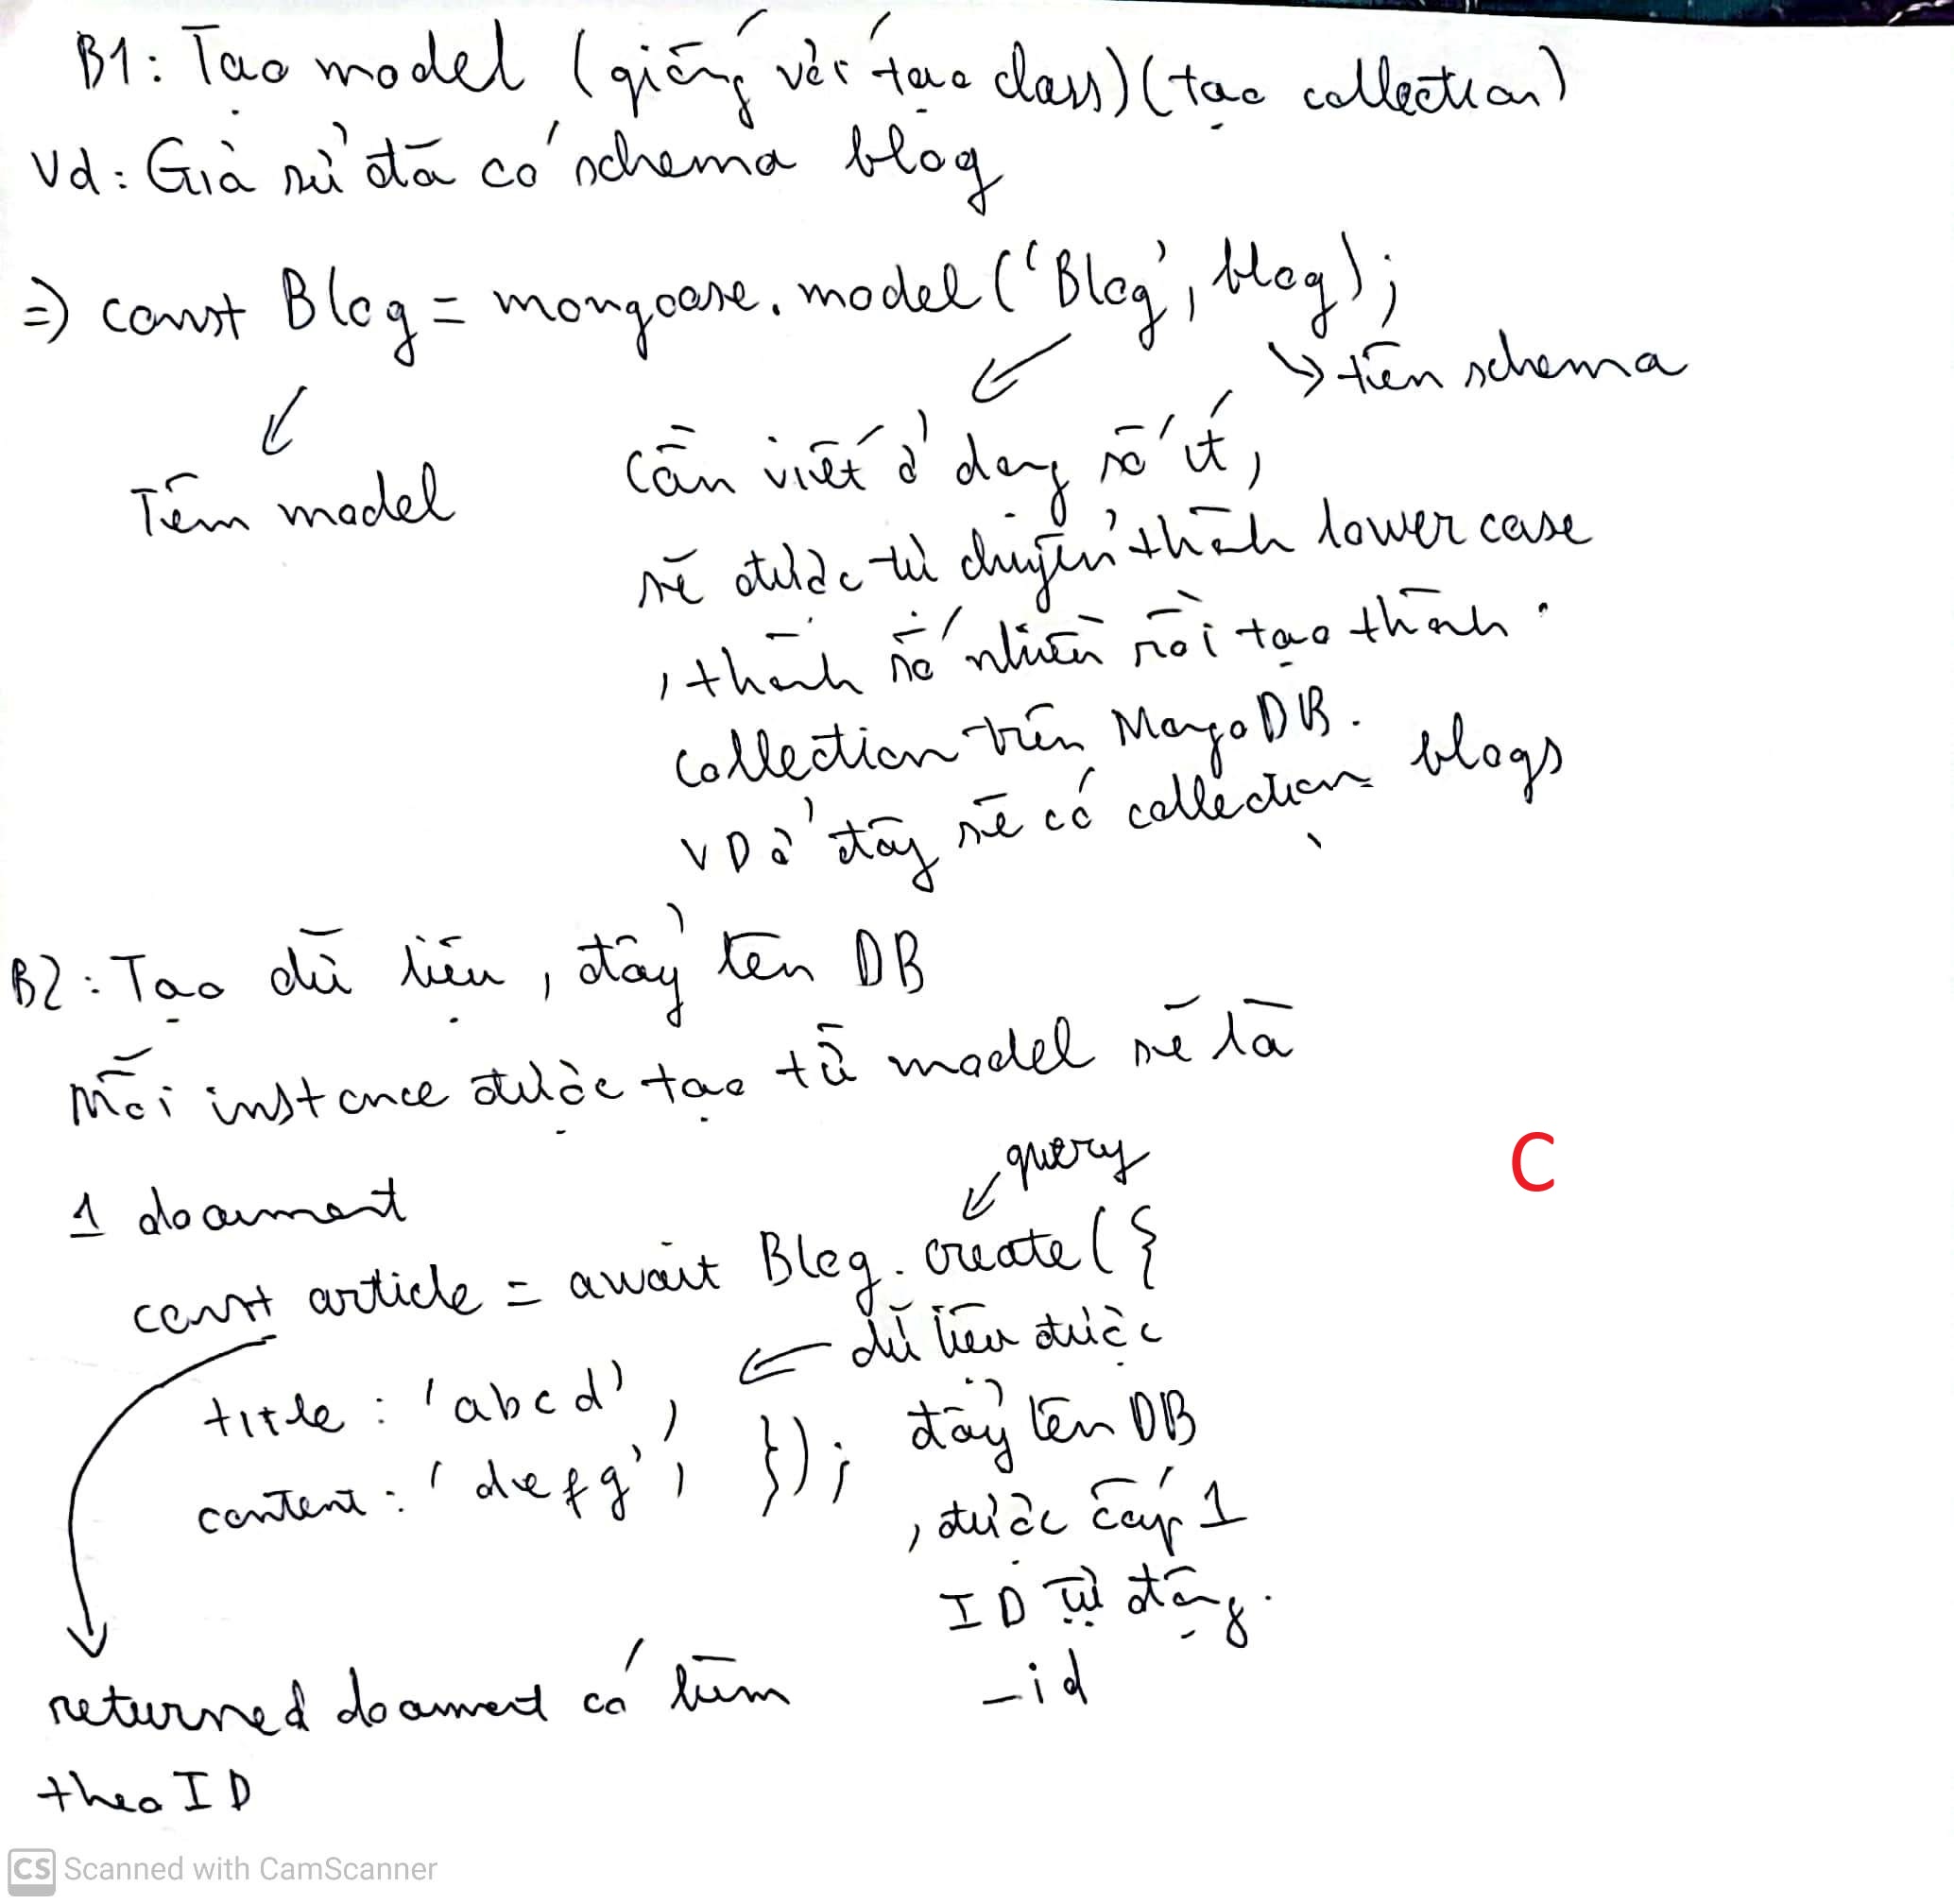 B1: Tạo model (giống với tạo class) (tạo collection)
Vd: Giả sử đã có schema blog
=> const Blog = mongoose.model('Blog', blog);
→ tên schema
Tên model
Cần viết ở dạng số ít,
sẽ được tự chuyển thành lowercase
, thành số nhiều rồi tạo thành
collection trên MongoDB.
VD ở đây sẽ có collection blogs
B2: Tạo dữ liệu, đẩy lên DB
Mỗi instance được tạo từ model sẽ là
1 document
query
C
const article = await Blog.create({
title: 'abcd',
content: 'defg', });
← dữ liệu được
đẩy lên DB
, được cấp 1
ID tự động.
_id
returned document có kèm
theo ID
CS Scanned with CamScanner